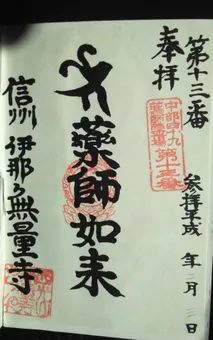 第十三番
奉拝
中部四十九
薬師霊場
第十三番
参拝平成 年 月 日
薬師如来
信州 伊那 無量寺